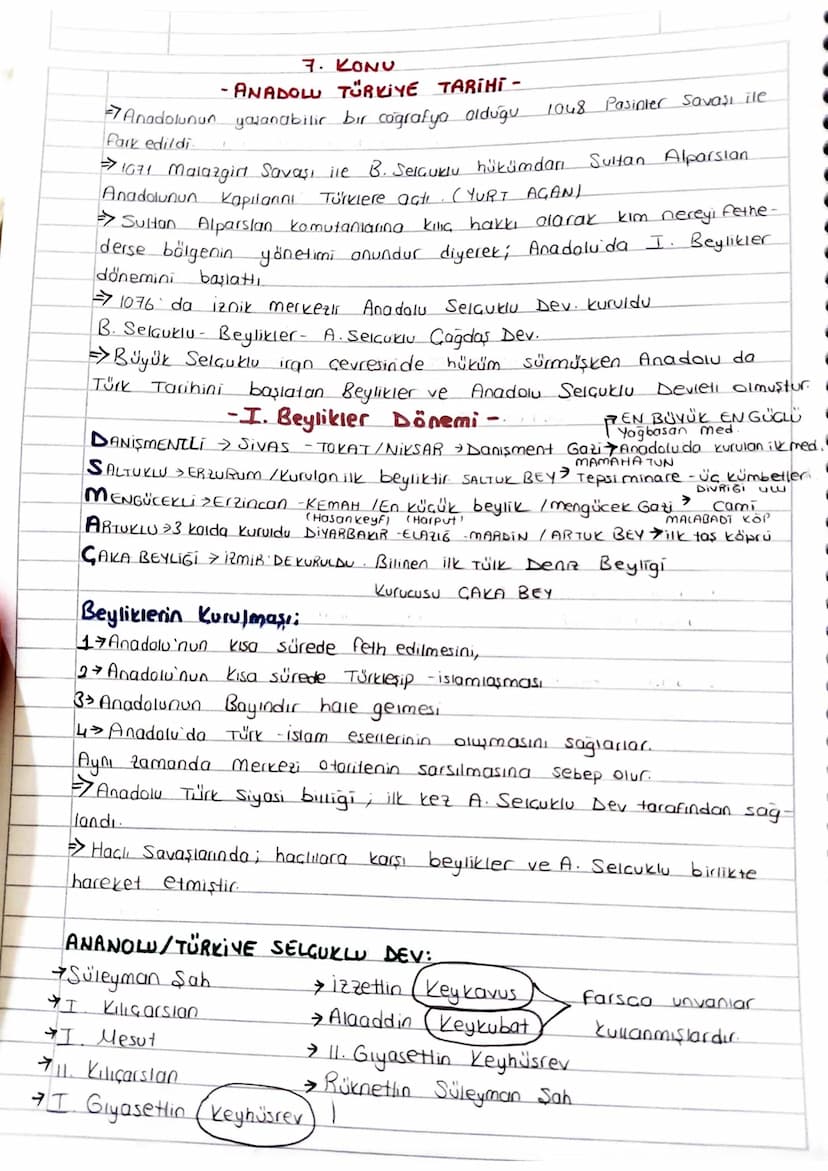 7. KONU
- ANADOLU TÜRKİYE TARİHİ -
⇒ Anadolunun yaşanabilir bir coğrafya olduğu 1048 Pasinler Savaşı ile
fark edildi.
⇒ 1071 Malazgirt Savaşı ile B. Selçuklu hükümdarı Sultan Alparslan
Anadolunun Kapılarını Türklere açtı. (YURT AÇAN)
⇒ Sultan Alparslan komutanlarına kılıç hakkı olarak kim nereyi fethe-
derse bölgenin yönetimi onundur diyerek; Anadolu'da I. Beylikler
dönemini başlattı
⇒ 1076' da iznik merkezli Anadolu Selçuklu Dev. kuruldu
B. Selçuklu - Beylikler - A. Selçuklu Çağdaş Dev.
⇒ Büyük Selçuklu iran çevresinde hüküm sürmüşken Anadolu da
Türk Tarihini başlatan Beylikler ve Anadolu Selçuklu Devleti olmuştur.
- I. Beylikler Dönemi -
→ EN BÜYÜK EN GÜÇLÜ
Yağbasan med.
DANİŞMENTLİ → SİVAS - TOKAT / NİKSAR → Danişment Gazi → Anadoluda kurulan ilk med.
MAMAHATUN
SALTUKLU → ERZURUM / Kurulan ilk beyliktir SALTUK BEY → Tepsi minare - üç kümbetler
DİVRİĞİ ULU
MENGÜCEKLİ → Erzincan - KEMAH / En küçük beylik / mengücek Gazi → Cami
(Hasankeyf) (Harput) MALABADİ KÖP
ARTUKLU → 3 kolda kuruldu DİYARBAKIR - ELAZIĞ - MARDİN / ARTUK BEY → ilk taş köprü
ÇAKA BEYLİĞİ → İZMİR' DE KURULDU. Bilinen ilk Türk Deniz Beyliği
Kurucusu ÇAKA BEY
Beyliklerin Kurulması;
1→ Anadolu'nun kısa sürede feth edilmesini,
2→ Anadolu'nun kısa sürede Türkleşip - islamlaşması
3→ Anadolunun Bayındır hale gelmesi
4→ Anadolu'da Türk - islam eserlerinin oluşmasını sağlarlar.
Aynı zamanda merkezi otoritenin sarsılmasına sebep olur.
⇒ Anadolu Türk Siyasi birliği; ilk kez A. Selçuklu Dev tarafından sağ-
landı.
⇒ Haçlı Savaşlarında; haçlılara karşı beylikler ve A. Selçuklu birlikte
hareket etmiştir.
ANANOLU/TÜRKİYE SELÇUKLU DEV:
→ Süleyman Şah
→ I. Kılıçarslan
→ I. Mesut
→ II. Kılıçarslan
→ I. Gıyasettin Keyhüsrev
→ İzzettin Keykavus
→ Alaaddin Keykubat
→ II. Gıyasettin Keyhüsrev
→ Rüknettin Süleyman Şah
Farsça unvanlar
kullanmışlardır.